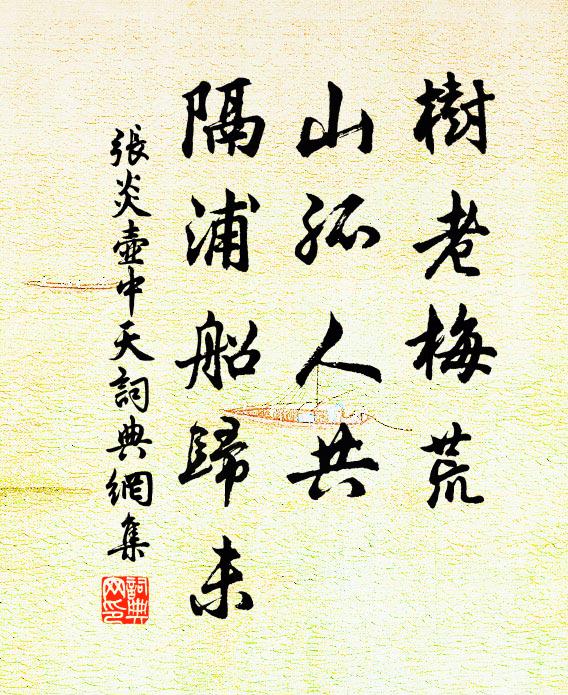 樹老梅荒
山孤人共
隔浦船歸未
張炎壺中天詞典網集
詞典網印